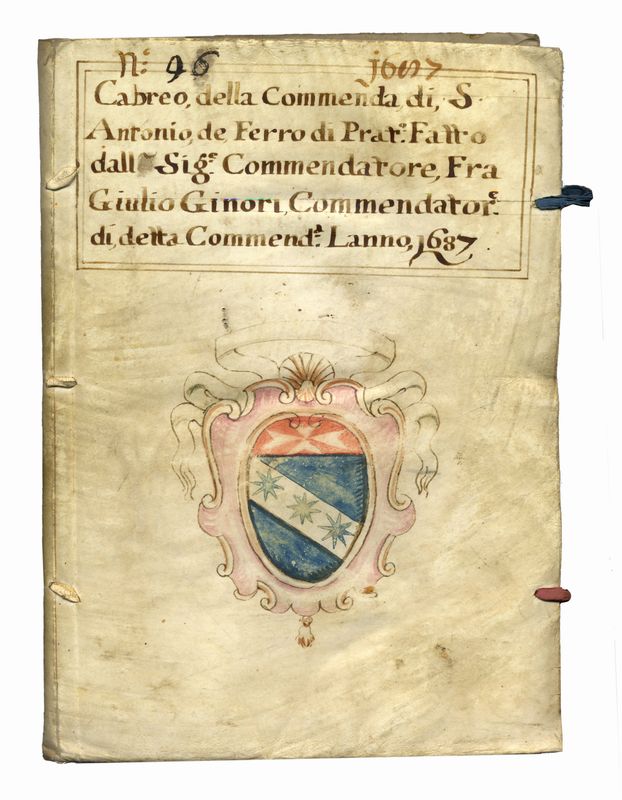 N.º 96 1687
Cabreo, della Commenda, di, S
Antonio, de Ferro di Prat.º Fatto
dall Sig.e Commendatore, Fra
Giulio Ginori, Commendator.e
di, detta Commend.a Lanno, 1687